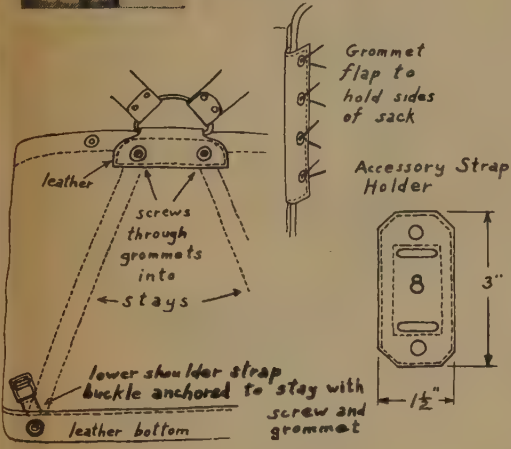 Grommet
flap to
hold sides
of sack
leather
screws
through
grommets
into
stays
Accessory Strap
Holder
8
3"
1½"
lower shoulder strap
buckle anchored to stay with
screw and
grommet
leather bottom